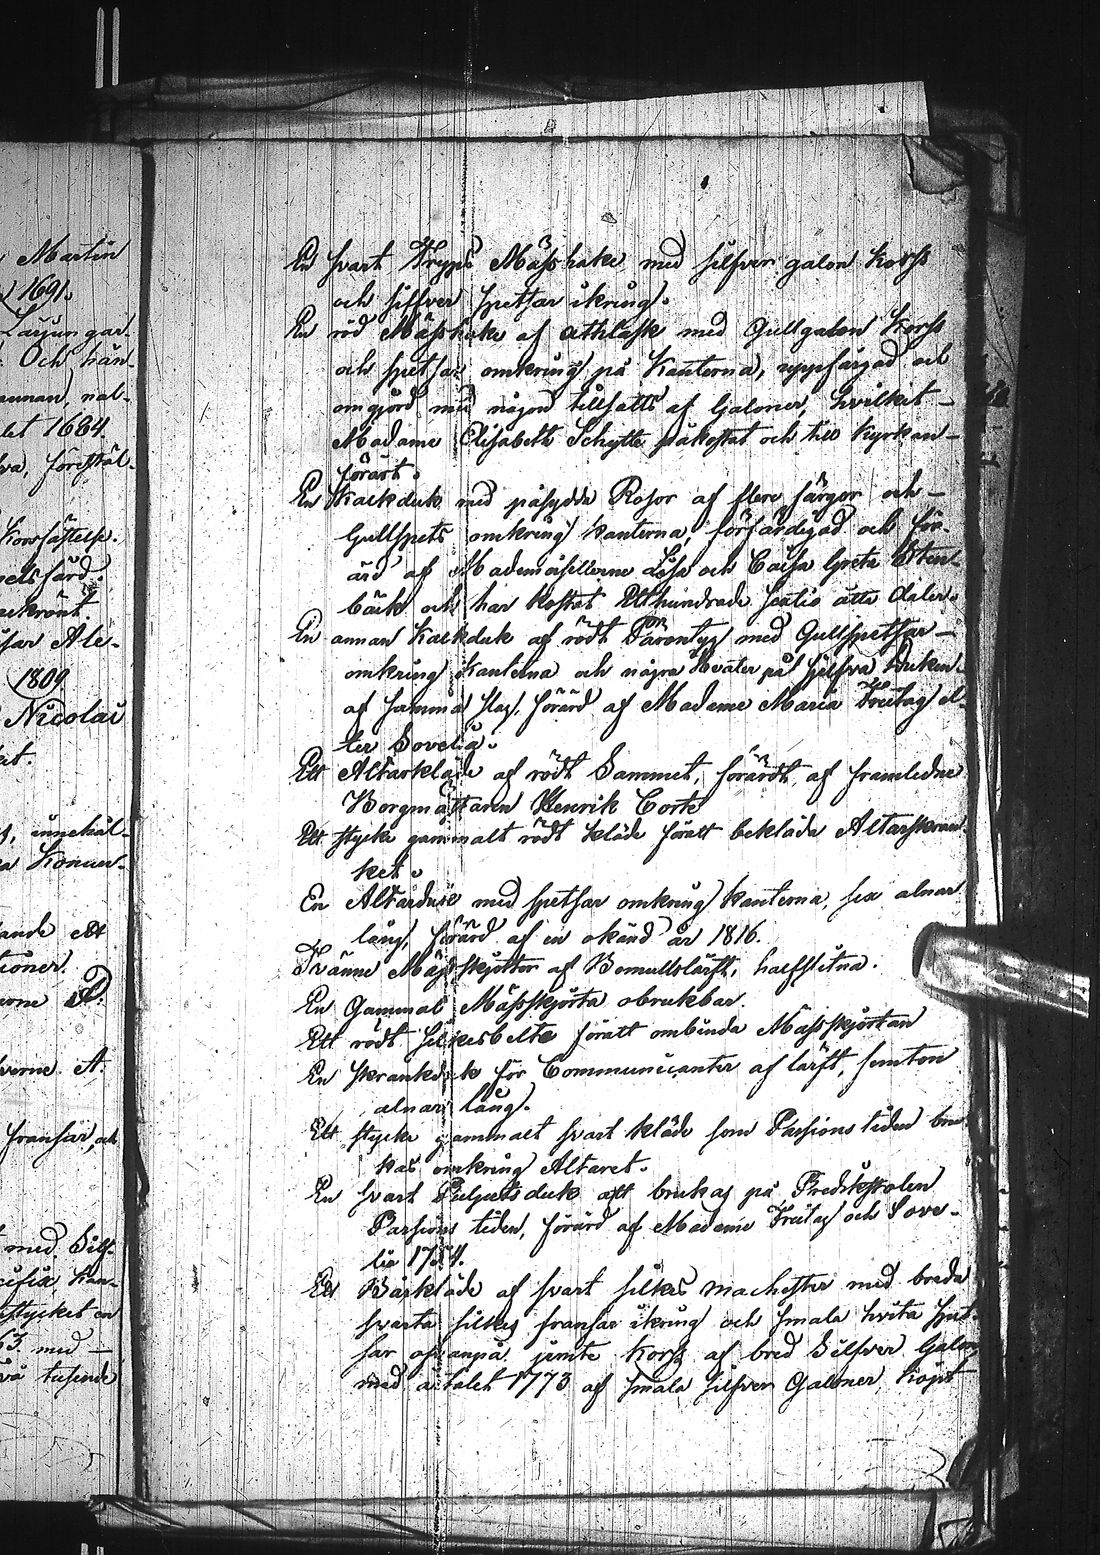 Martin
1691.
Larjungar.
Och hän-
nal-
let 1684.
förestäl-
Korsfästelse.
Ale-
1809
Nicolai
innehål-
ande ett
tioner.
A.
fransar, och
med Silf-
stycket en
63 med —
två tusende
En svart Kripps Mässhake med silfver galon Korss
och silfver spetsar ikring.
En röd Mässhake af Athlask med Gullgalon Korss
och spetsar omkring på Kanterna, uppfärgad och
omgjord med någon tillsatts af Galoner, hvilket —
Madame Elisabeth Schytte påkostat och till Kyrkan —
förärt.
En Kalkduk med påsydda Rosor af flere färger och —
Gullspets omkring kanterna, förfärdigad och för-
ärd af Mademoisellerne Lisa och Caisa Greta Sten-
bäck och har kostat Etthundrade sextio åtta daler.
En annan Kalkduk af rödt Pärontyg med Gullspetsar —
omkring Kanterna och några Kvaster på sjelfva Duken
af samma slag, förärd af Madame Maria Freitag el-
ler Sovelia.
Ett Altarkläde af rödt Sammet, förärdt af framledne
Borgmästaren Henrik Corte
Ett stycke gammalt rödt kläde föratt bekläda Altarskran-
ket.
En Altarduk med spetsar omkring kanterna, sex alnar
lång, förärd af en okänd år 1816.
Tvänne Mässkjortor af Bomullslärft, halfslitna.
En Gammal Mässskjorta obrukbar.
Ett rödt silkesbelte föratt ombinda Mässskjortan
En skrankduk för Communicanter af lärft, femton
alnar lång.
Ett stycke gammalt svart kläde som Passions tiden bru-
kas omkring Altaret.
En svart Pulpetsduk att brukas på Predikstolen
Passions tiden, förärd af Madame Freitag och Sove-
lia 1754.
Ett Bårkläde af svart silkes machester med breda
svarta silkes fransar ikring och smala hvita spet-
sar ofvanpå jemte Korss af bred Silfver Galon
med åtalet 1773 af smala silfver Galoner, köpt